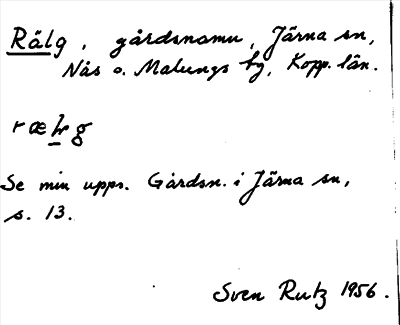 Rälg, gårdsnamn, Järna sn,
Nås o. Malungs fg, Kopp. län.
Se min upps. Gårdsn. i Järna sn,
s. 13.
Sven Rutz 1956.